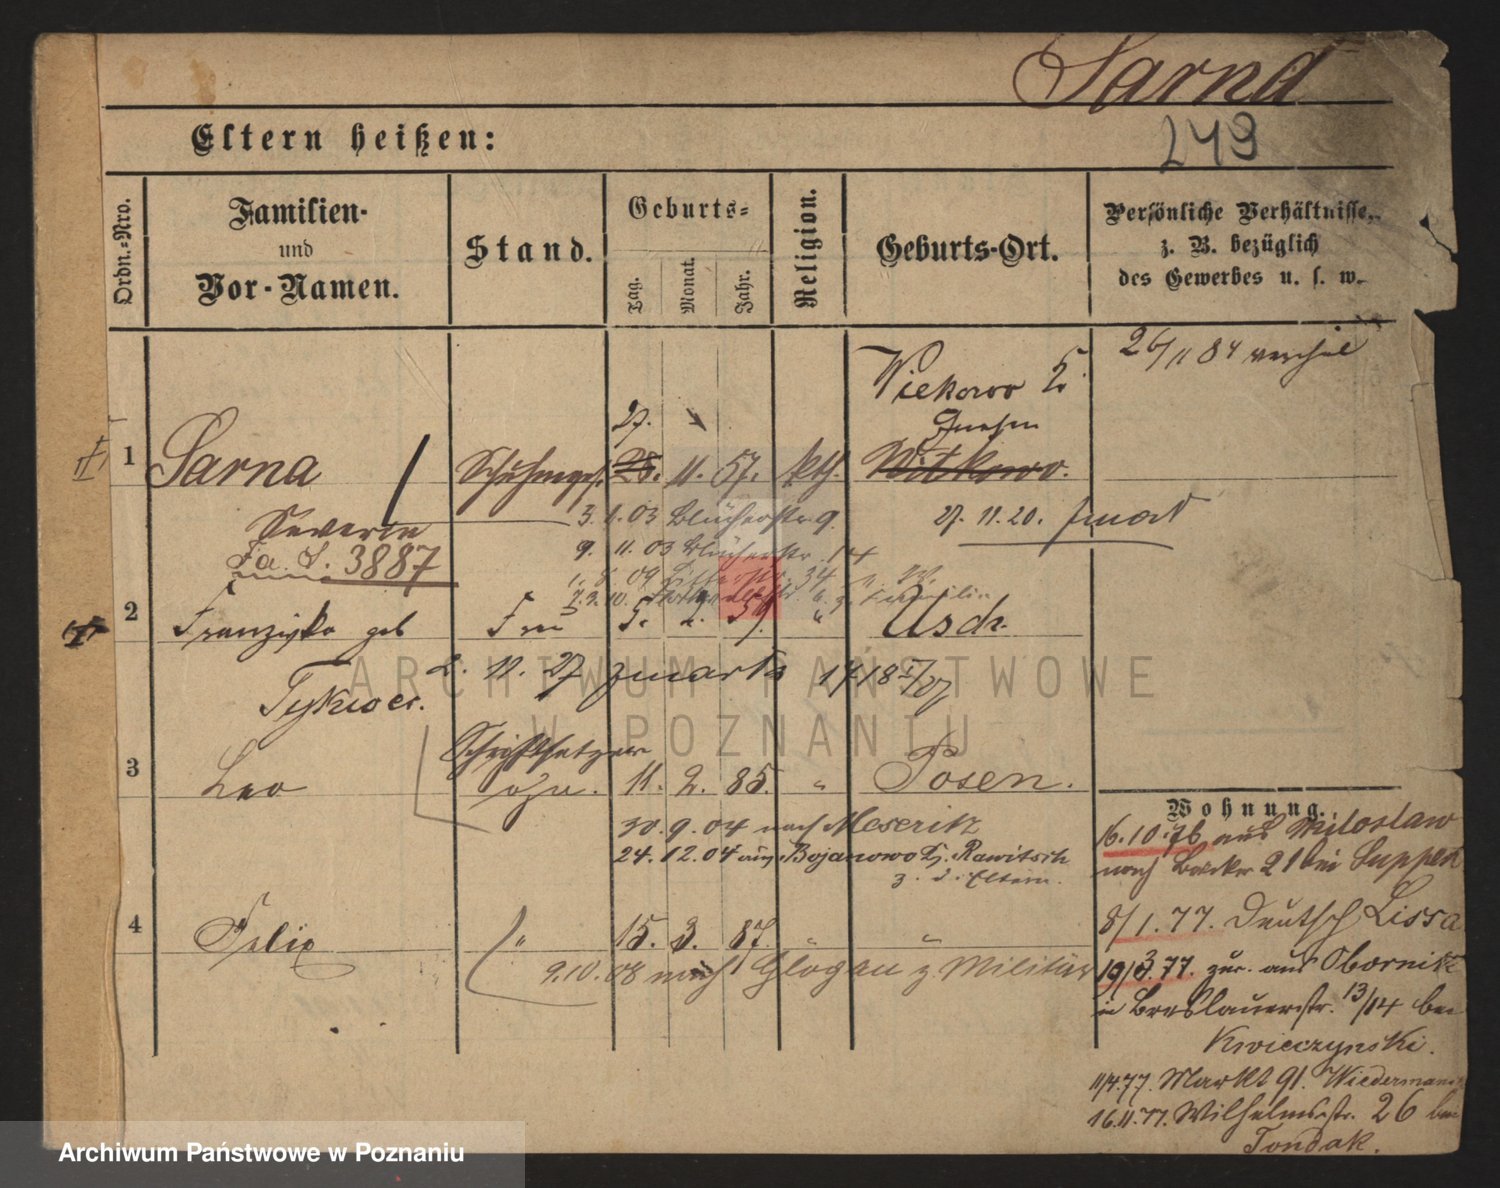 Sarna
249
Eltern heißen:
Ordn.-Nro.
Familien-
und
Vor-Namen.
Stand.
Geburts-
Tag.
Monat.
Jahr.
Religion.
Geburts-Ort.
Persönliche Verhältnisse,
z. B. bezüglich
des Gewerbes u. s. w.
26/11 84
Wiekowo Kr.
Gnesen
27.
1 Sarna Schuhmges. 28. 11. 57. kth. Witkowo.
Severin 3. 1. 03 Blücherstr 9. 27. 11. 20.
Fa. S. 3887 9. 11. 03 Blücherstr. 14
1. 8. 09 34
7. 3. 10.
2 Franziska geb Frau " Usch.
2. 11. 27 1718
3 Leo Schriftsetzer 11. 2. 85. " Posen.
Wohnung.
30. 9. 04 nach Meseritz
24. 12. 04 aus Bojanowo Kr. Rawitsch
z. d. Eltern.
16.10.76 aus Miloslaw
nach 21 bei
4 Felix " 15. 3. 87. " "
8/1. 77. Deutsch Lissa
9.10.08 nach Glogau z. Militär
19/3 77. zur. aus Obornik
in Breslauerstr. 13/14 bei
Kwieczynski.
11/4.77. Markt 91. Wiedermann
16.11.77. Wilhelmsstr. 26 bei
Tondak.
ARCHIWUM PAŃSTWOWE
W POZNANIU
Archiwum Państwowe w Poznaniu